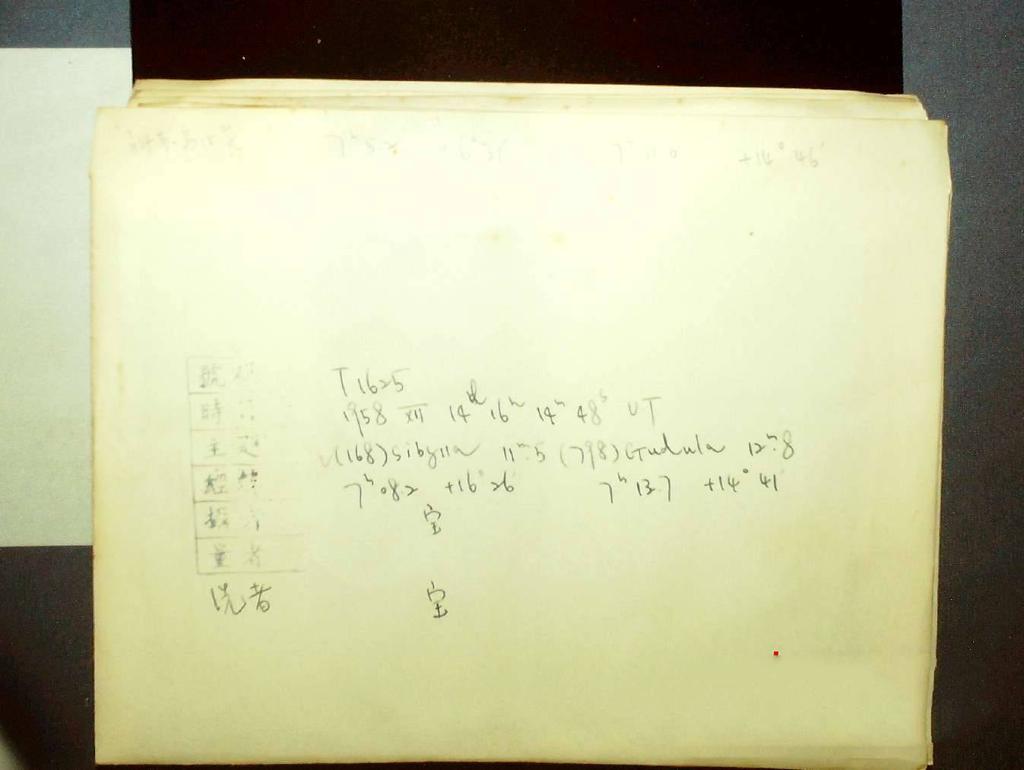 +14° 46′
號
T 1625
時
1958 XII 14d 16h 14m 48s UT
主
(168) Sibylla 11m.5 (798) Gudula 12m.8
經緯
7h 08.2 +16° 26′ 7h 13.7 +14° 41′
宝
量者
洗者 宝